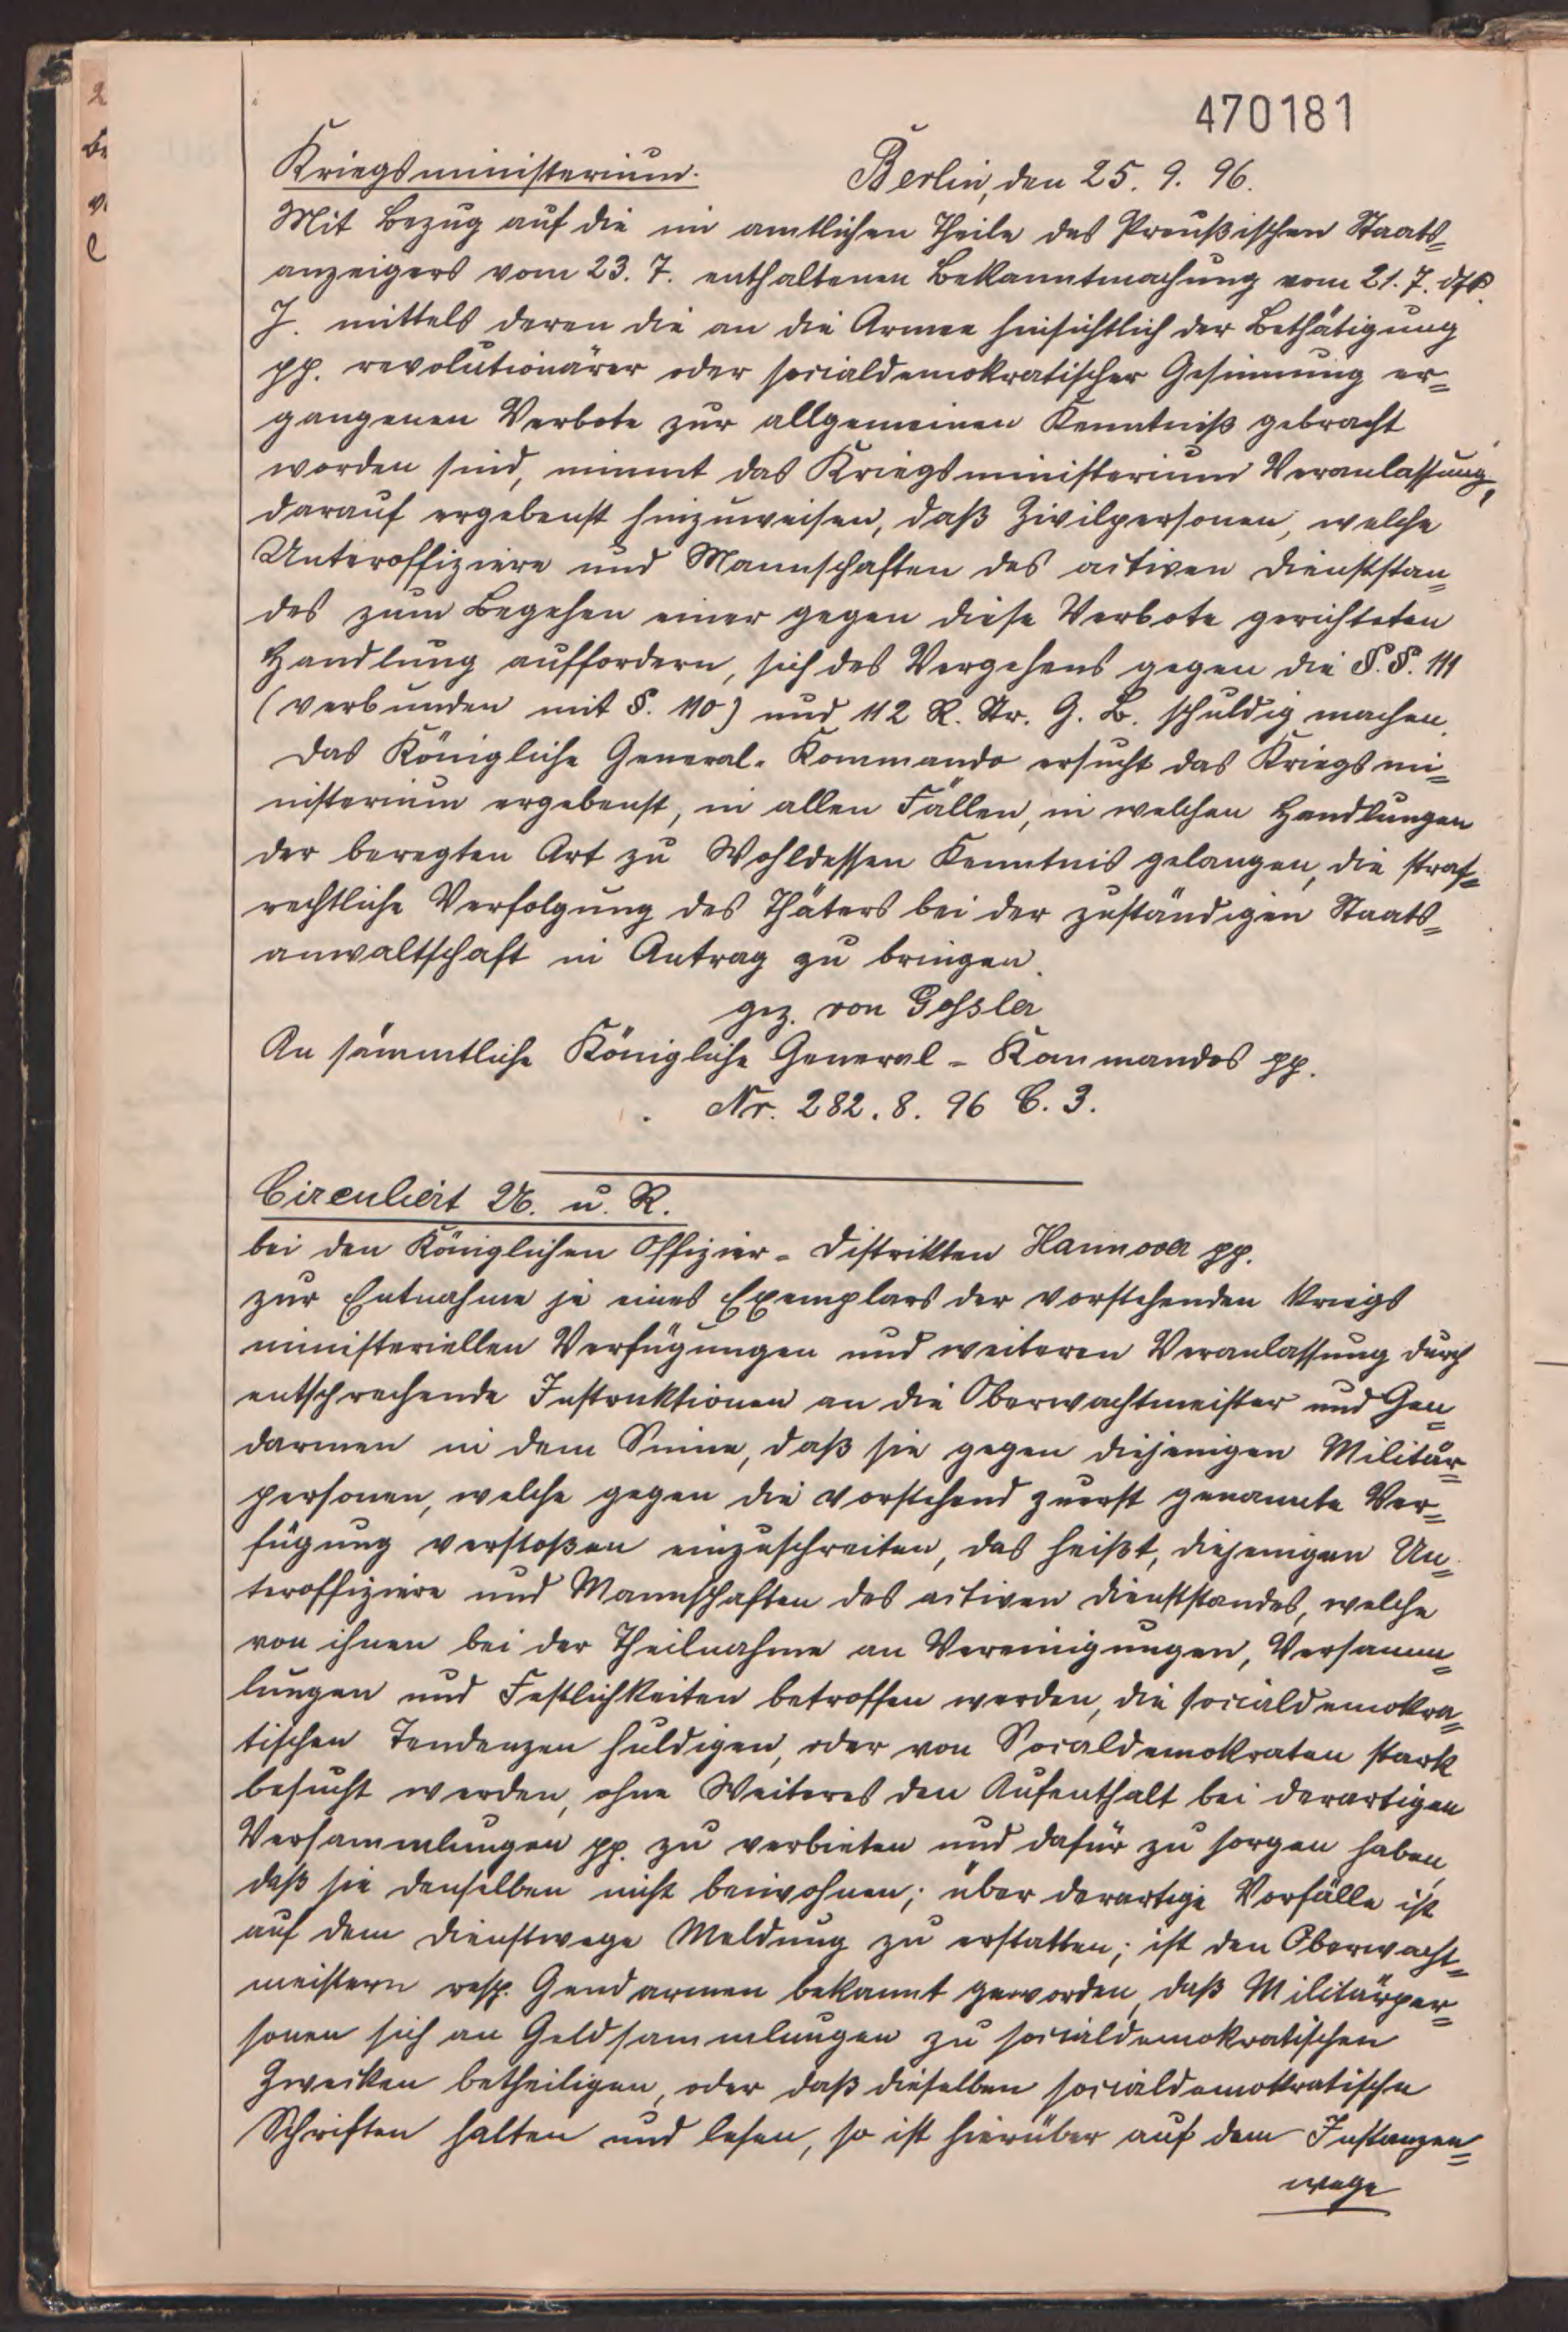 470181
Kriegsministerium. Berlin, den 25. 9. 96.
Mit Bezug auf die im amtlichen Theile des Preußischen Staats-
anzeigers vom 23. 7. enthaltenen Bekanntmachung vom 21. 7. dſs.
J. mittels deren die an die Armee hinsichtlich der Bethätigung
pp. revolutionärer oder socialdemokratischer Gesinnung er-
gangenen Verbote zur allgemeinen Kenntniß gebracht
worden sind, nimmt das Kriegsministerium Veranlassung,
darauf ergebenst hinzuweisen, daß Zivilpersonen, welche
Unteroffiziere und Mannschaften des activen Dienststan-
des zum Begehen einer gegen diese Verbote gerichteten
Handlung auffordern, sich des Vergehens gegen die §.§. 111
(verbunden mit §. 110) und 112 R. Str. G. B. schuldig machen.
Das Königliche General-Kommando ersucht das Kriegsmi-
nisterium ergebenst, in allen Fällen, in welchen Handlungen
der beregten Art zu Wohldessen Kenntnis gelangen, die straf-
rechtliche Verfolgung des Thäters bei der zuständigen Staats-
anwaltschaft in Antrag zu bringen.
gez. von Gossler
An sämmtliche Königliche General-Kommandos pp.
Nr. 282. 8. 96 C. 3.
Circuliert u. R.
bei den Königlichen Offizier-Distrikten Hannover pp.
zur Entnahme je eines Exemplars der vorstehenden kriegs
ministeriellen Verfügungen und weiteren Veranlassung durch
entsprechende Instruktionen an die Oberwachtmeister und Gen-
darmen in dem Sinne, daß sie gegen diejenigen Militär-
personen, welche gegen die vorstehend zuerst genannte Ver-
fügung verstoßen einzuschreiten, das heißt, diejenigen Un-
teroffiziere und Mannschaften des activen Dienststandes, welche
von ihnen bei der Theilnahme an Vereinigungen, Versamm-
lungen und Festlichkeiten betroffen werden, die socialdemokra-
tischen Tendenzen huldigen, oder von Socialdemokraten stark
besucht werden, ohne Weiteres den Aufenthalt bei derartigen
Versammlungen pp. zu verbieten und dafür zu sorgen haben,
daß sie denselben nicht beiwohnen; über derartige Vorfälle ist
auf dem Dienstwege Meldung zu erstatten; ist den Oberwacht-
meistern resp. Gendarmen bekannt geworden, daß Militärper-
sonen sich an Geldsammlungen zu socialdemokratischen
Zwecken betheiligen, oder daß dieselben socialdemokratische
Schriften halten und lesen, so ist hierüber auf dem Instanzen-
wege